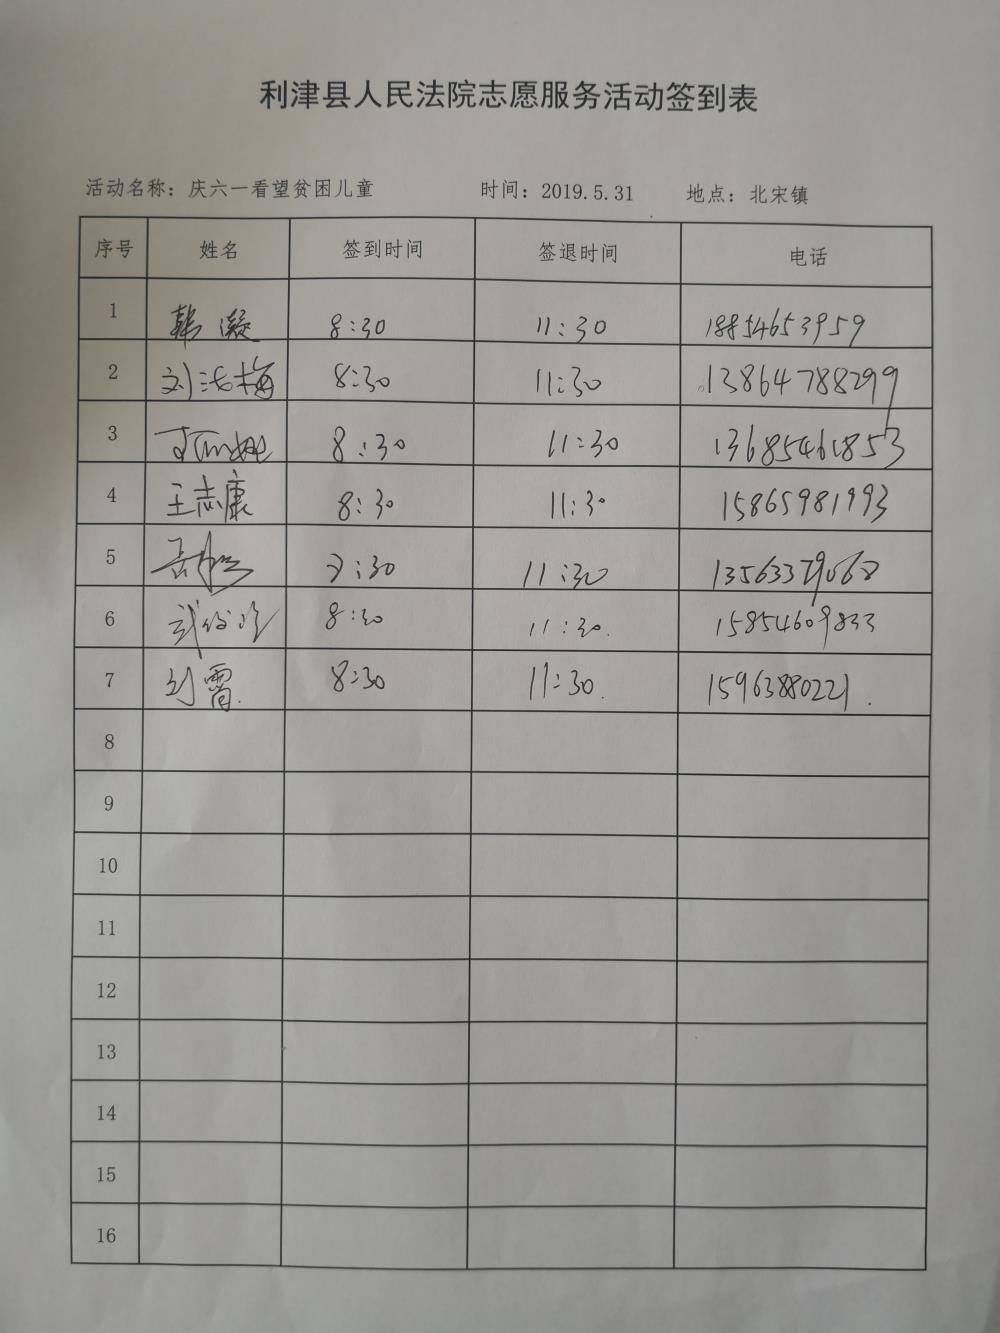 利津县人民法院志愿服务活动签到表
活动名称：庆六一看望贫困儿童 时间：2019.5.31 地点：北宋镇
序号 姓名 签到时间 签退时间 电话
1 韩凝 8:30 11:30 18854653959
2 刘洁梅 8:30 11:30 13864788299
3 8:30 11:30 13685461853
4 王志康 8:30 11:30 15865981993
5 :30 11:30
6 8:30 11:30. 15854609833
7 刘霄. 8:30 11:30. 15963880221.
8
9
10
11
12
13
14
15
16